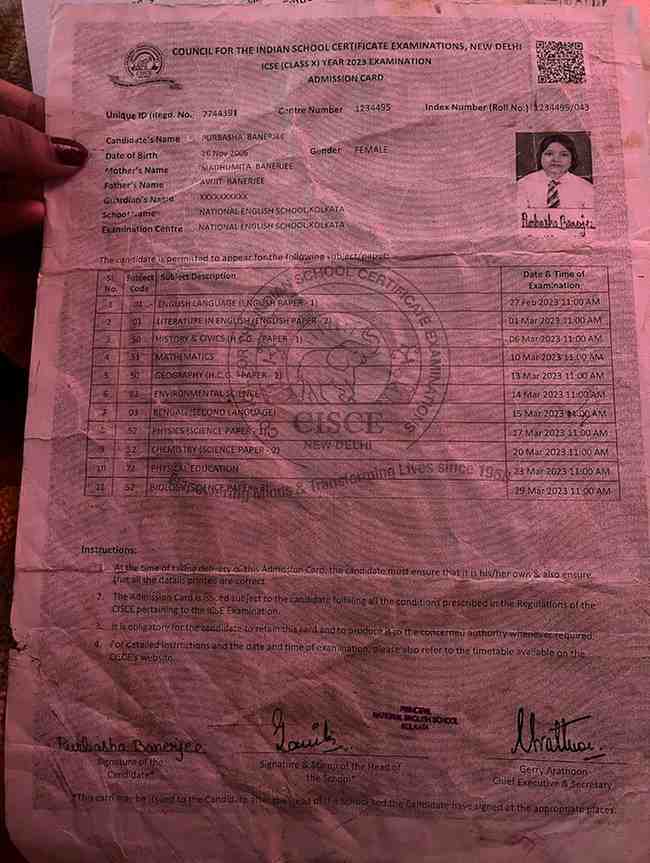 COUNCIL FOR THE INDIAN SCHOOL CERTIFICATE EXAMINATIONS, NEW DELHI
ICSE (CLASS X) YEAR 2023 EXAMINATION
ADMISSION CARD
Unique ID (Regd. No. 7744391 Centre Number 1234495 Index Number (Roll No.) 1234495/043
Candidate's Name PURBASHA BANERJEE
Date of Birth 26 Nov 2006 Gender FEMALE
Mother's Name MADHUMITA BANERJEE
Father's Name AVIJIT BANERJEE
Guardian's Name XXXXXXXXXX
School Name NATIONAL ENGLISH SCHOOL,KOLKATA
Examination Centre NATIONAL ENGLISH SCHOOL,KOLKATA
Purbasha Banerjee
The candidate is permitted to appear for the following subject/paper:
Sl. No. Subject Code Subject Description Date & Time of Examination
1 01 ENGLISH LANGUAGE (ENGLISH PAPER - 1) 27 Feb 2023 11:00 AM
2 01 LITERATURE IN ENGLISH (ENGLISH PAPER - 2) 01 Mar 2023 11:00 AM
3 50 HISTORY & CIVICS (H.C.G. - PAPER - 1) 06 Mar 2023 11:00 AM
4 51 MATHEMATICS 10 Mar 2023 11:00 AM
5 50 GEOGRAPHY (H.C.G. - PAPER - 2) 13 Mar 2023 11:00 AM
6 ENVIRONMENTAL SCIENCE 14 Mar 2023 11:00 AM
7 03 BENGALI (SECOND LANGUAGE) 15 Mar 2023 11:00 AM
8 52 PHYSICS (SCIENCE PAPER - 1) 17 Mar 2023 11:00 AM
9 52 CHEMISTRY (SCIENCE PAPER - 2) 20 Mar 2023 11:00 AM
10 72 PHYSICAL EDUCATION 23 Mar 2023 11:00 AM
11 52 BIOLOGY (SCIENCE PAPER - 3) 29 Mar 2023 11:00 AM
INDIAN SCHOOL CERTIFICATE EXAMINATIONS
CISCE
NEW DELHI
Minds & Transforming Lives since 1958
Instructions:
1. At the time of taking delivery of this Admission Card, the candidate must ensure that it is his/her own & also ensure
that all the details printed are correct.
2. The Admission Card is issued subject to the candidate fulfilling all the conditions prescribed in the Regulations of the
CISCE pertaining to the ICSE Examination.
3. It is obligatory for the candidate to retain this card and to produce it to the concerned authority whenever required.
4. For detailed instructions and the date and time of examination, please also refer to the timetable available on the
CISCE's website.
PRINCIPAL
NATIONAL ENGLISH SCHOOL
KOLKATA
Purbasha Banerjee
Signature of the
Candidate*
Signature & Stamp of the Head of
the School*
Gerry Arathoon
Chief Executive & Secretary
*This card may be issued to the Candidate after the Head of the School and the Candidate have signed at the appropriate places.